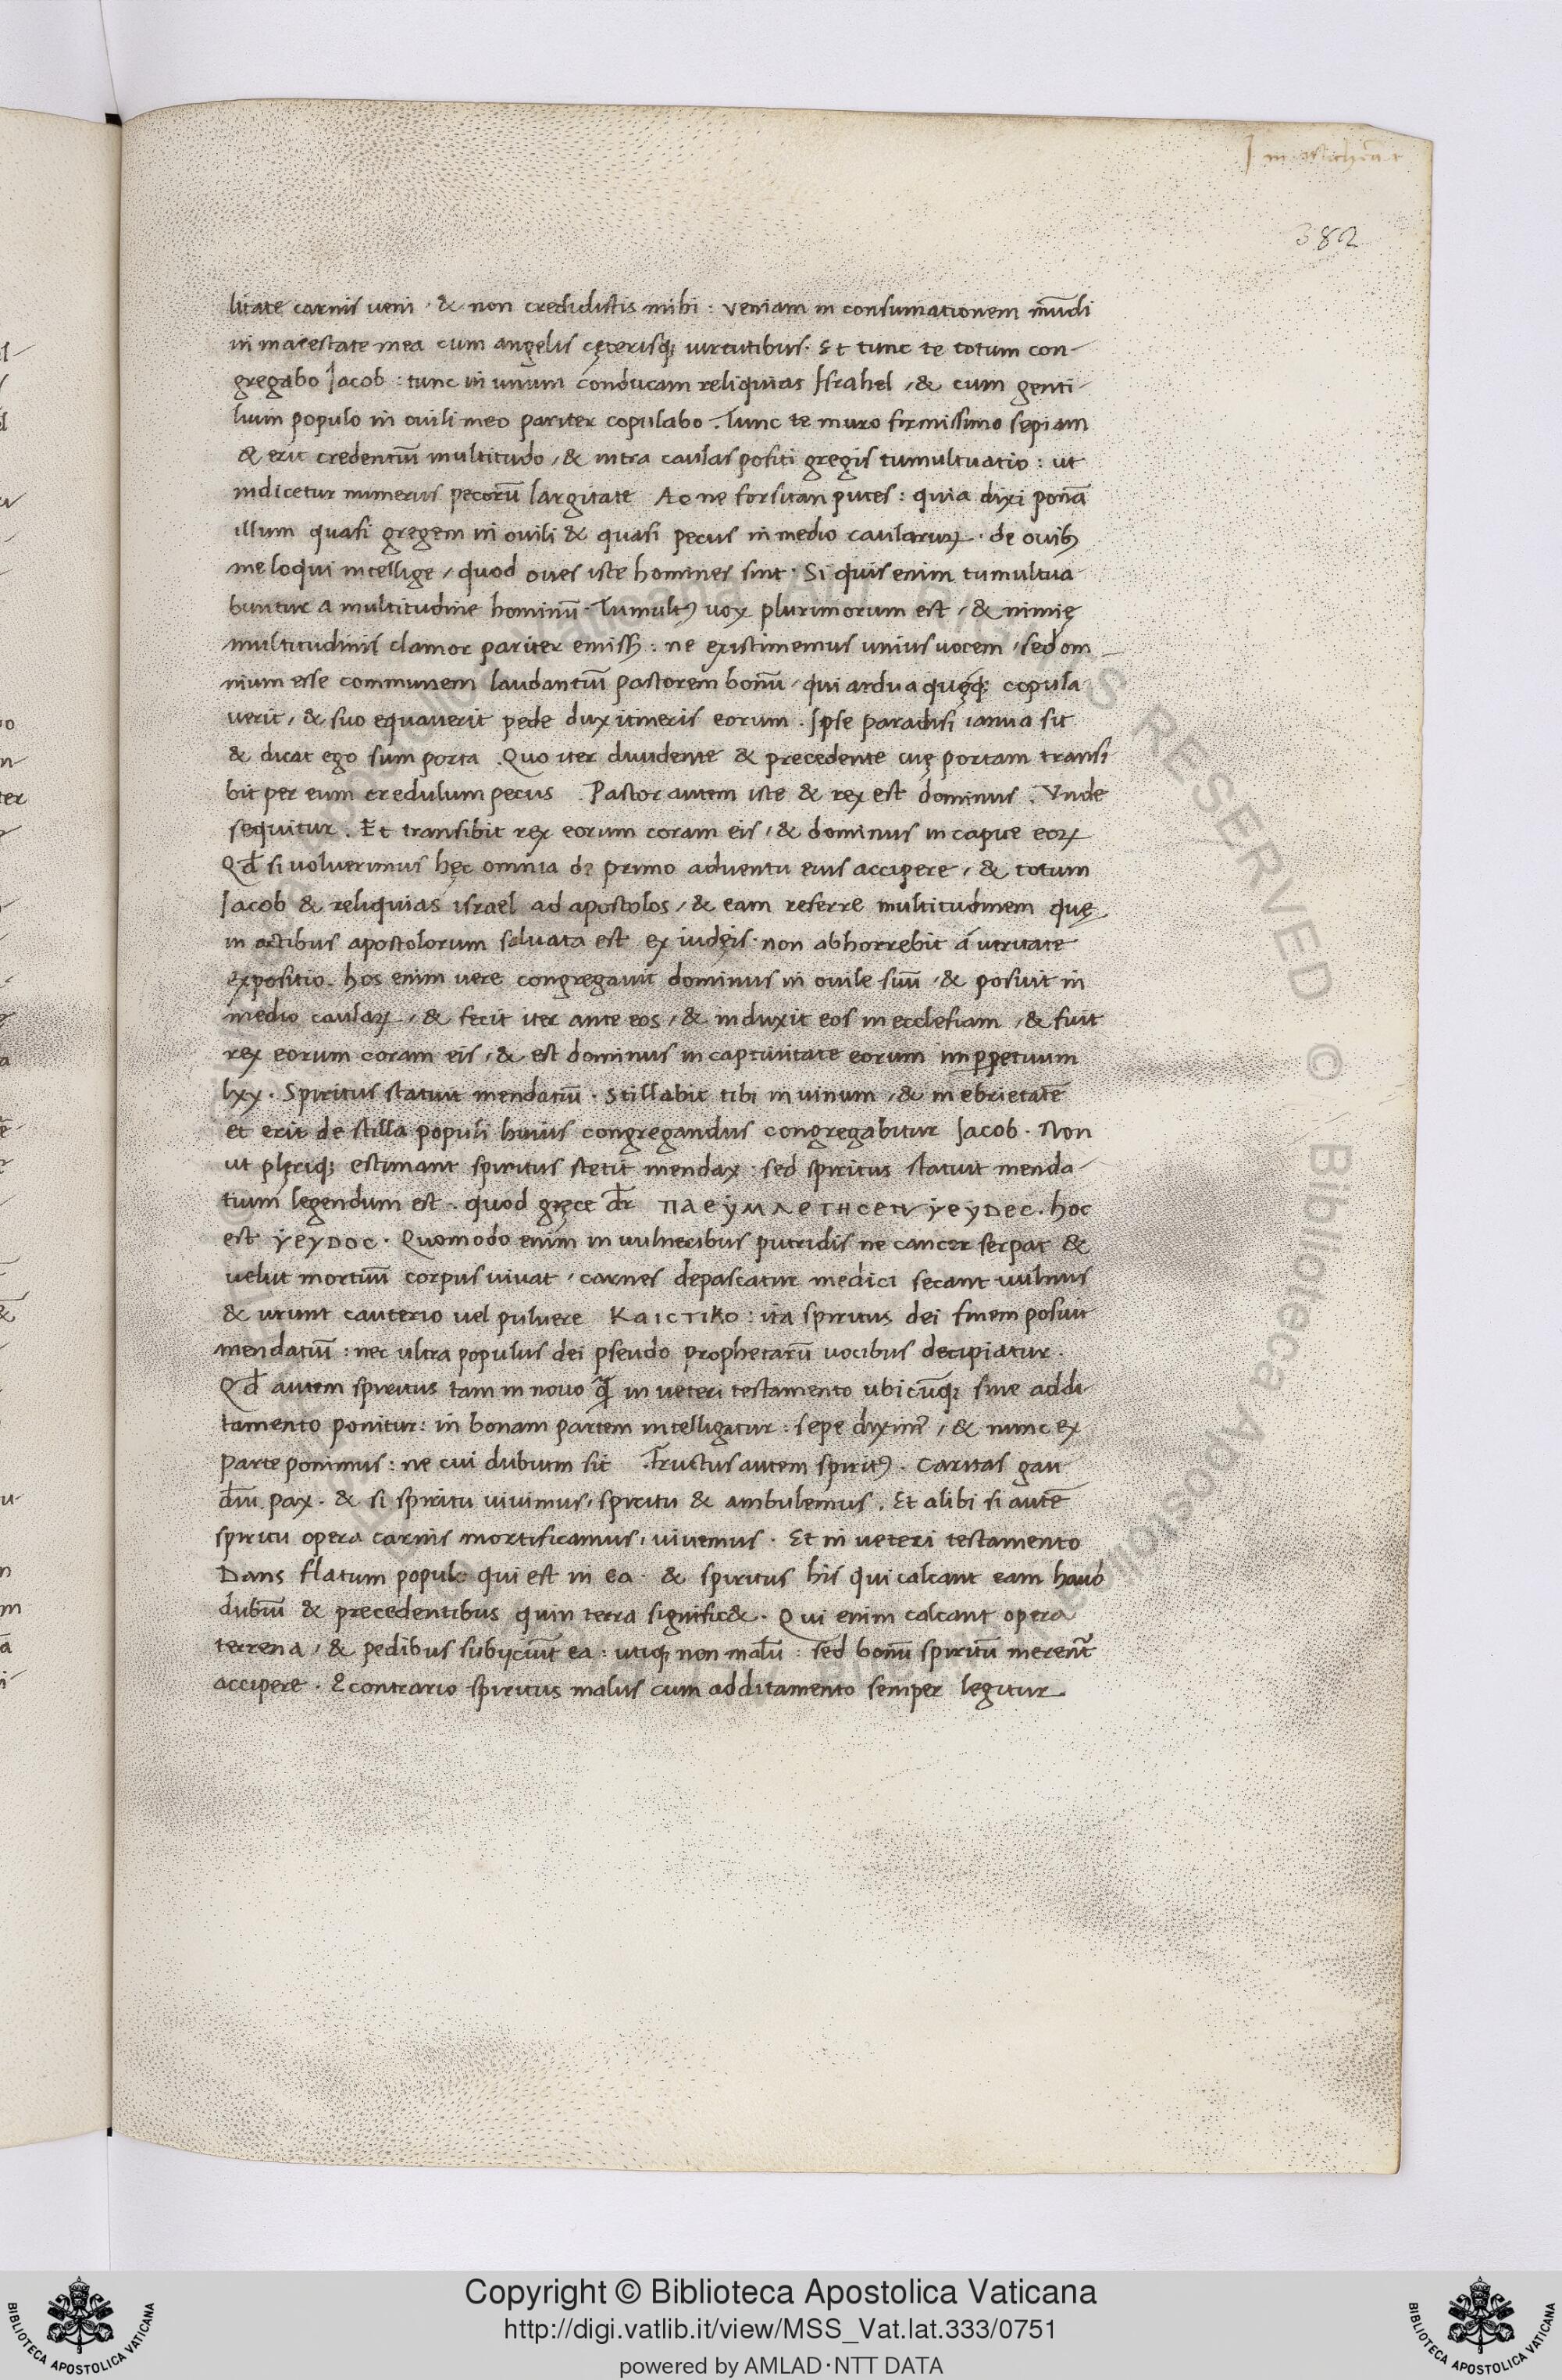 382
litate carnis ueni · & non credidistis mihi : veniam in consumationem mūdi
in maiestate mea cum angelis cęterisq; uirtutibus. Et tunc te totum con-
gregabo Jacob : tunc in unum conducam reliquias Israhel , & cum genti-
lium populo in ouili meo pariter copulabo . Tunc te muro firmissimo sepiam
& erit credentiū multitudo , & intra caulas positi gregis tumultuatio : ut
indicetur numerus pecorū largitate Ac ne forsitan putes : quia dixi ponā
illum quasi gregem in ouili & quasi pecus in medio caularuꝝ · de ouibꝰ
me loqui intellige , quod oues iste homines sint · Si quis enim tumultua
buntur a multitudine hominū · Tumultꝰ uox plurimorum est , & nimię
multitudinis clamor pariter emissꝰ : ne existimemus unius uocem , sed om
nium esse communem laudantiū pastorem bonū , qui ardua quęq; copula
uerit , & suo equauerit pede dux itineris eorum . Ipse paradisi ianua sit
& dicat ego sum porta . Quo iter diuidente & precedente cuię portam transi
bit per eum credulum pecus . Pastor autem iste & rex est dominus . Vnde
sequitur . Et transibit rex eorum coram eis , & dominus in capite eoꝝ
Qđ si voluerimus hęc omnia de primo aduentu eius accipere , & totum
Jacob & reliquias israel ad apostolos , & eam referre multitudinem quę
in actibus apostolorum saluata est ex iudęis · non abhorrebit a ueritate
expositio . hos enim vere congregauit dominus in ouile suū , & posuit in
medio caulaꝝ , & fecit iter ante eos , & induxit eos in ecclesiam , & fuit
rex eorum coram eis , & est dominus in captiuitate eorum imꝑpetuum
lxx . Spiritus statuit mendatiū . Stillabit tibi in uinum , & in ebrietatē
et erit de stilla populi huius congregandus congregabitur Jacob . Non
ut plęriq; estimant spiritus stetit mendax : sed spiritus statuit menda-
tium legendum est . quod gręce dr̄ ΠΑΕΥΜΑ ΕΤΗCΕΝ ΥΕΥDΕC . hoc
est ΥΕΥDΟC . Quomodo enim in uulneribus putridis ne cancer serpat &
uelut mortuū corpus uiuat , carnes depascatur medici secant uulnus
& urunt cauterio uel puluere ΚΑΙCΤΙΚΟ : ita spiritus dei finem posuit
mendatiū : nec ultra populus dei pseudo prophetarū uocibus decipiatur .
Qđ autem spiritus tam in nouo ꝙ̄ in ueteri testamento ubicūq; sine addi-
tamento ponitur : in bonam partem intelligatur : sepe diximꝰ , & nunc ex
parte ponimus : ne cui dubium sit . Fructus autem spiritꝰ . Caritas gau
diū . pax . & si spiritu uiuimus , spiritu & ambulemus . Et alibi si autē
spiritu opera carnis mortificamus , uiuemus . Et in ueteri testamento
Dans flatum populo qui est in ea · & spiritus his qui calcant eam haud
dubiū & precedentibus quin terra signific& . Qui enim calcant opera
terrena , & pedibus subijciūt ea : utiq; non malū : sed bonū spiritū merent᷑
accipere . E contrario spiritus malus cum additamento semper legitur .
Copyright © Biblioteca Apostolica Vaticana
http://digi.vatlib.it/view/MSS_Vat.lat.333/0751
powered by AMLAD·NTT DATA
BIBLIOTECA APOSTOLICA VATICANA
BIBLIOTECA APOSTOLICA VATICANA